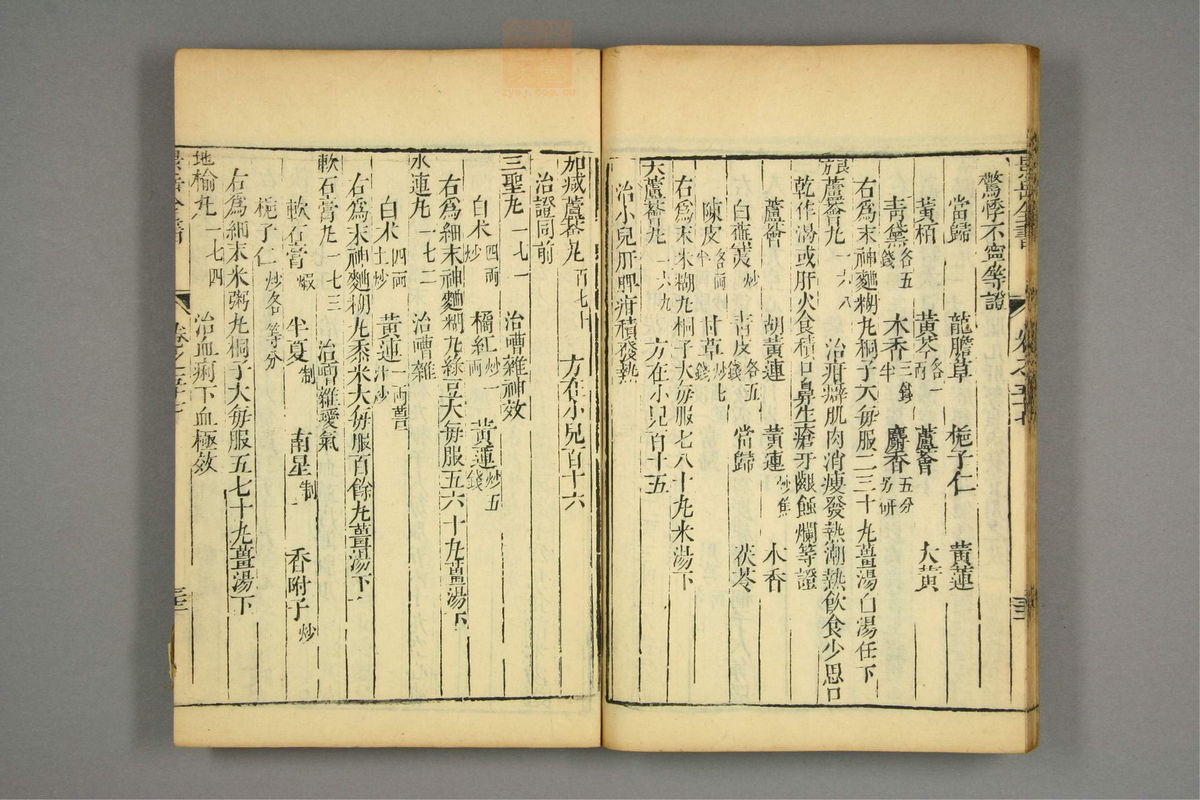 驚悸不寧等證
當歸 龍膽草 梔子仁 黃連
黃栢 黃芩各一両 蘆薈 大黃
青黛各五錢 木香二錢半 麝香五分另研
右爲末神麯糊丸桐子大每服二三十丸薑湯白湯任下
蘆薈丸一六八 治疳癖肌肉消瘦發熱潮熱飲食少思口
乾作渴或肝火食積口鼻生瘡牙齦蝕爛等證
蘆薈 胡黃連 黃連炒焦 木香
白蕪荑炒 青皮各五錢 當歸 茯苓
陳皮各両半 甘草炒七錢
右爲末米糊丸桐子大每服七八十丸米湯下
大蘆薈丸一六九 方在小兒百十五
治小兒肝脾疳積發熱
加減蘆薈丸百七十 方在小兒百十六
治證同前
三聖丸一七一 治嘈雜神效
白朮四両炒 橘紅炒一両 黃連炒五錢
右爲細末神麯糊丸綠豆大每服五六十丸薑湯下
朮連丸一七二 治嘈雜
白朮四両土炒 黃連一両薑汁炒
右爲末神麯糊丸黍米大每服百餘丸薑湯下
軟石膏丸一七三 治嘈雜噯氣
軟石膏煆 半夏制 南星制 香附子炒
梔子仁炒各等分
右爲細末米粥丸桐子大每服五七十丸薑湯下
地榆丸一七四 治血痢下血極效